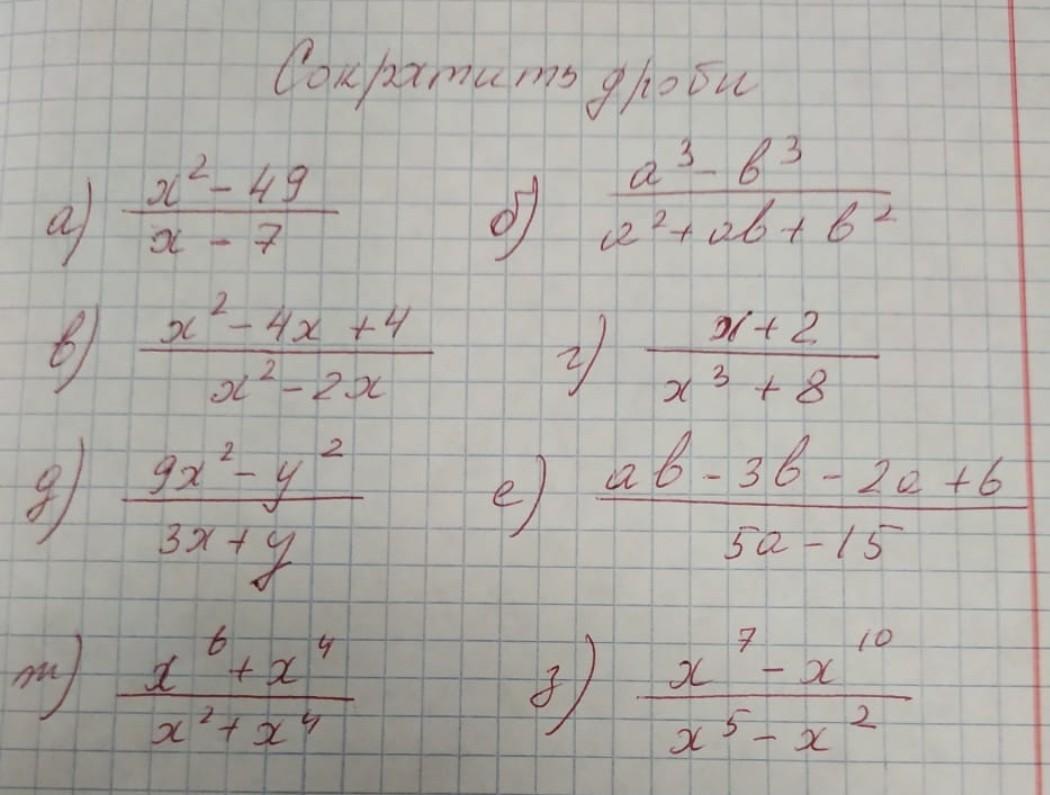 Сократить дроби
а) (x² - 49)/(x - 7) б) (a³ - b³)/(a² + ab + b²)
в) (x² - 4x + 4)/(x² - 2x) г) (x + 2)/(x³ + 8)
д) (9x² - y²)/(3x + y) е) (ab - 3b - 2a + 6)/(5a - 15)
ж) (x⁶ + x⁴)/(x² + x⁴) з) (x⁷ - x¹⁰)/(x⁵ - x²)